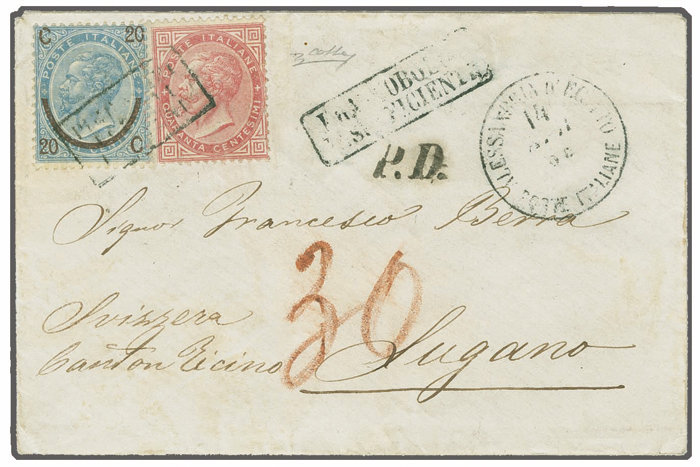 C 20
POSTE ITALIANE
20 C
POSTE ITALIANE
QUARANTA CENTESIMI
FRANCOBOLLO
INSUFFICIENTE
P.D.
ALESSANDRIA D'EGITTO
POSTE ITALIANE
Signor Francesco Berra
30
Svizzera
Canton Ticino Lugano